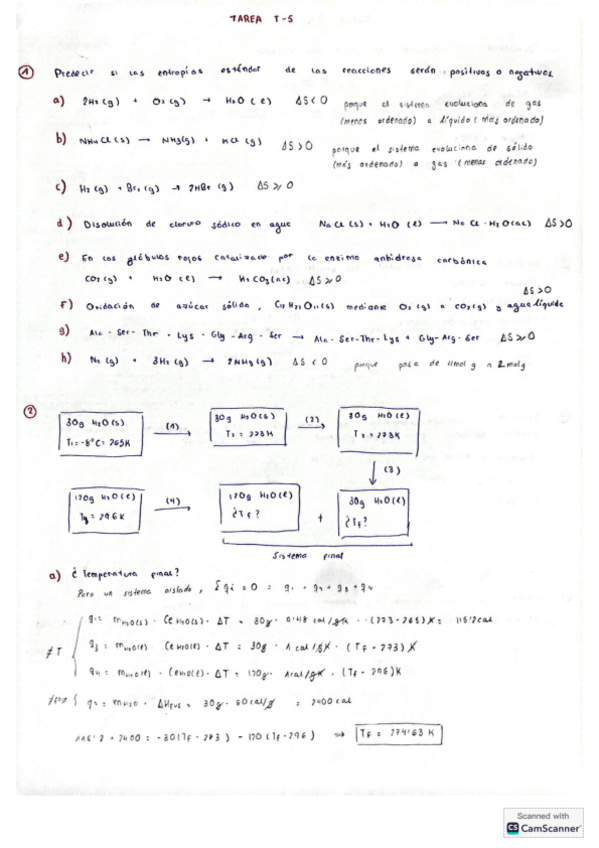 TAREA T-5
① Predecir si las entropías estándar de las reacciones serán positivas o negativas
a) 2H₂(g) + O₂(g) → H₂O(l) ΔS<0 porque el sistema evoluciona de gas
(menos ordenado) a líquido (más ordenado)
b) NH₄Cl(s) → NH₃(g) + HCl(g) ΔS>0 porque el sistema evoluciona de sólido
(más ordenado) a gas (menos ordenado)
c) H₂(g) + Br₂(g) → 2HBr(g) ΔS≥0
d) Disolución de cloruro sódico en agua NaCl(s) + H₂O(l) → NaCl·H₂O(ac) ΔS>0
e) En los glóbulos rojos catalizado por la enzima anhidrasa carbónica
CO₂(g) + H₂O(l) → H₂CO₃(ac) ΔS≥0
ΔS>0
f) Oxidación de azúcar sólida, C₁₂H₂₂O₁₁(s) mediante O₂(g) a CO₂(g) y agua líquida
g) Ala-Ser-Thr-Lys-Gly-Arg-Ser → Ala-Ser-Thr-Lys + Gly-Arg-Ser ΔS≥0
h) N₂(g) + 3H₂(g) → 2NH₃(g) ΔS<0 porque pasa de 4mol g a 2mol g
② 30g H₂O(s) (1) 30g H₂O(s) (2) 30g H₂O(l)
T₁=-8°C=265K T₂=273K T₂=273K
(3)
120g H₂O(l) (4) 120g H₂O(l) + 30g H₂O(l)
= 296K ¿Tf? ¿Tf?
Sistema final
a) ¿Temperatura final?
Para un sistema aislado, Σqi = 0 = q₁ + q₂ + q₃ + q₄
≠T q₁ = mH₂O(s) · CeH₂O(s) · ΔT = 30g · 0'418 cal/gK · (273-265)K = 115'2cal
q₃ = mH₂O(l) · CeH₂O(l) · ΔT = 30g · 1 cal/gK · (Tf-273)K
q₄ = mH₂O(l) · CeH₂O(l) · ΔT = 120g · 1cal/gK · (Tf-296)K
q₂ = mH₂O · ΔHfus = 30g · 80cal/g = 2400cal
115'2 + 2400 = -30(Tf-273) - 120(Tf-296) ⇒ Tf = 274'63 K
Scanned with
CS CamScanner